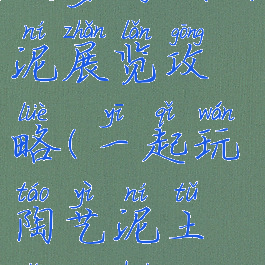 ní zhǎn lǎn gōng
泥展览攻
lüè yī qǐ wán
略(一起玩
táo yì ní tǔ
陶艺泥土